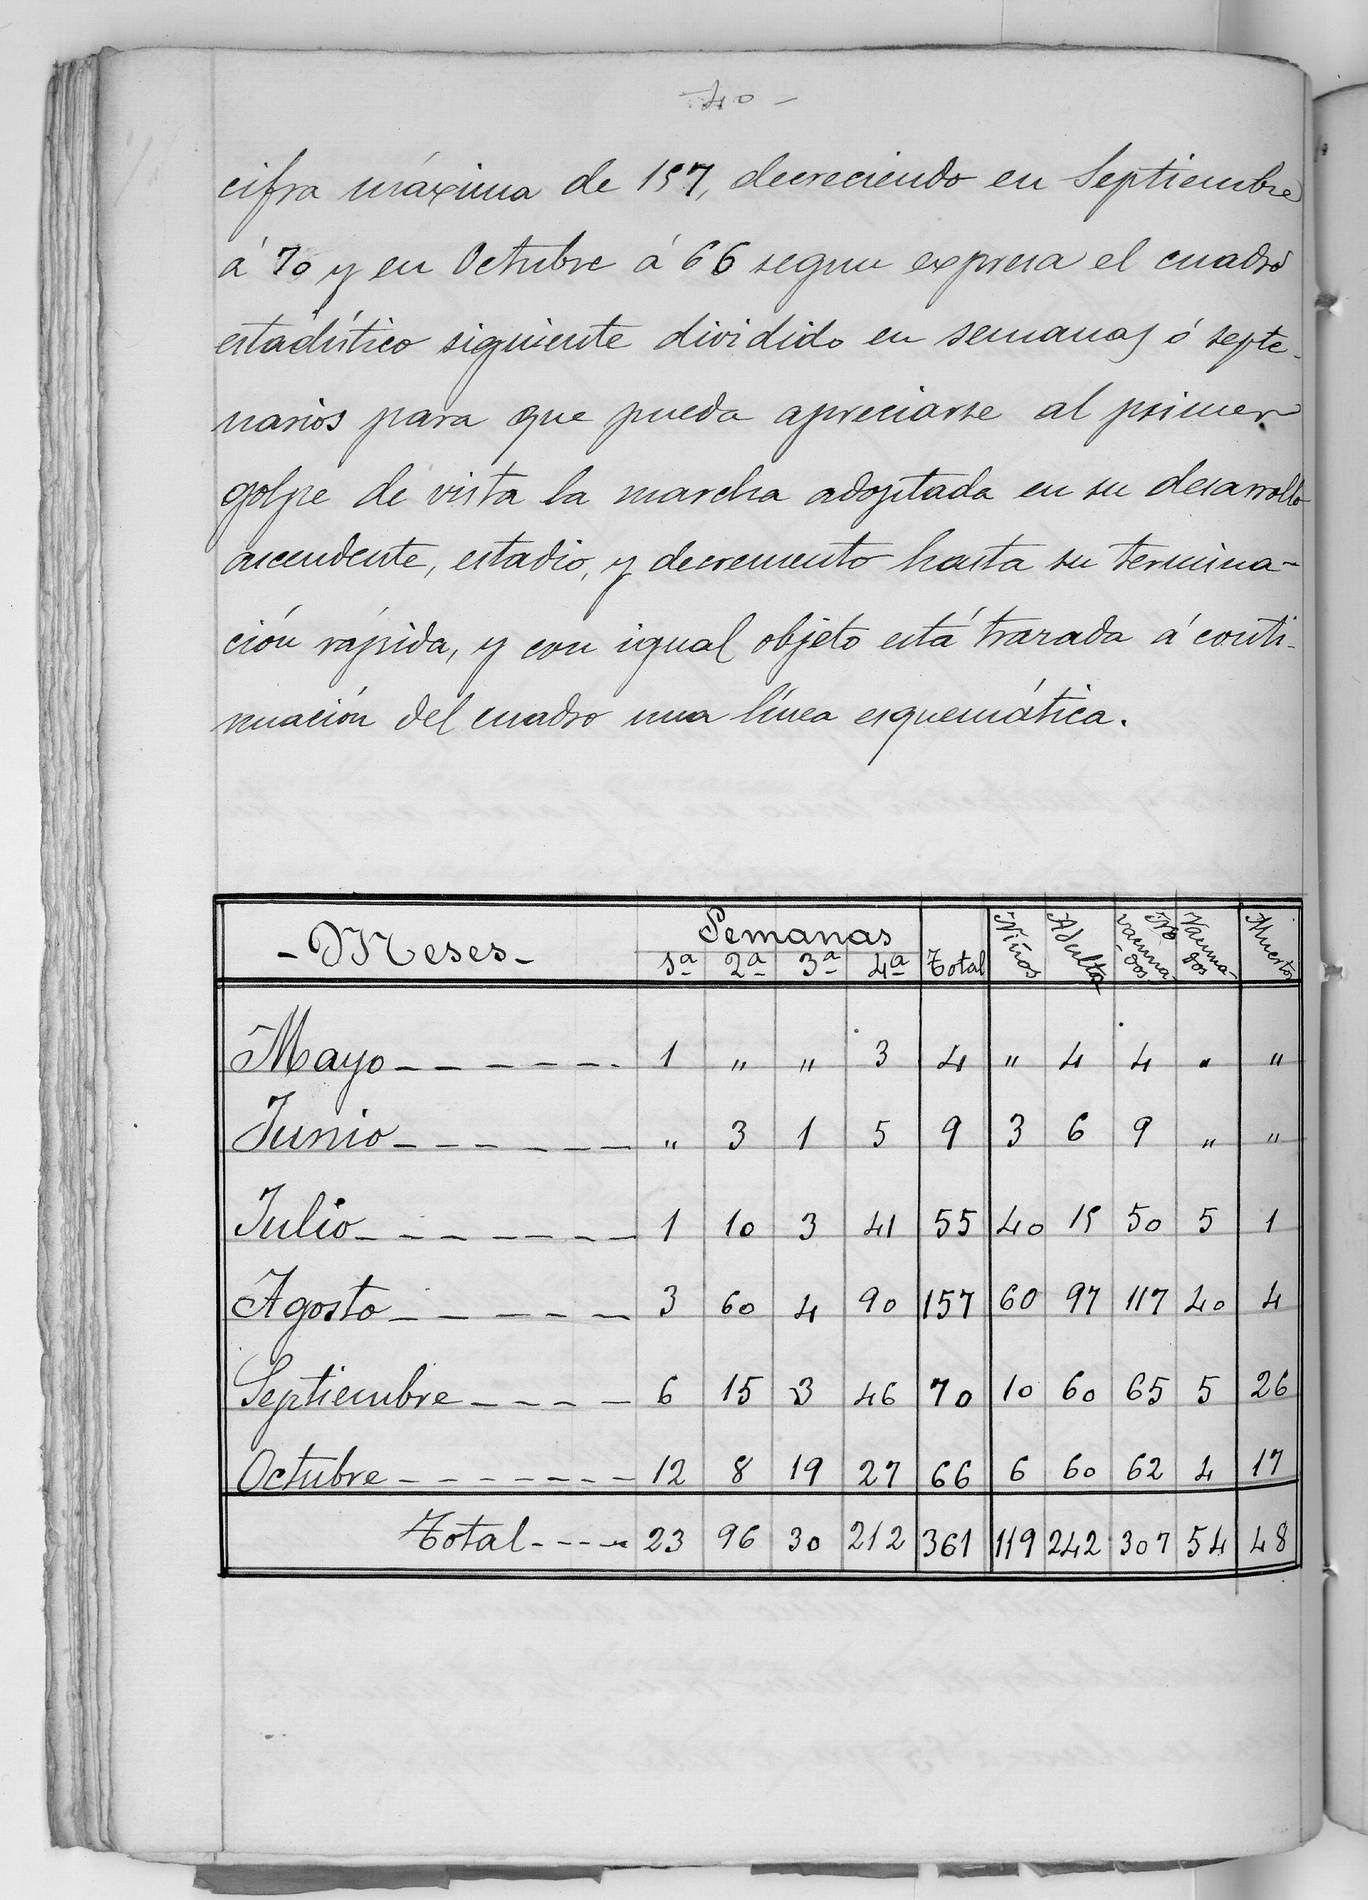 - 40 -
cifra máxima de 157, decreciendo en Septiembre
á 70 y en Octubre á 66 segun expresa el cuadro
estadístico siguiente dividido en semanas ó septe-
narios para que pueda apreciarse al primer
golpe de vista la marcha adoptada en su desarrollo
ascendente, estadio, y decremento hasta su termina-
ción rápida, y con igual objeto está trazada á conti-
nuación del cuadro una línea esquemática.
- Meses - Semanas 1ª 2ª 3ª 4ª Total Niños Adultos No vacunados Vacunados Muertos
Mayo 1 " " 3 4 " 4 4 " "
Junio " 3 1 5 9 3 6 9 " "
Julio 1 10 3 41 55 40 15 50 5 1
Agosto 3 60 4 90 157 60 97 117 40 4
Septiembre 6 15 3 46 70 10 60 65 5 26
Octubre 12 8 19 27 66 6 60 62 4 17
Total 23 96 30 212 361 119 242 307 54 48